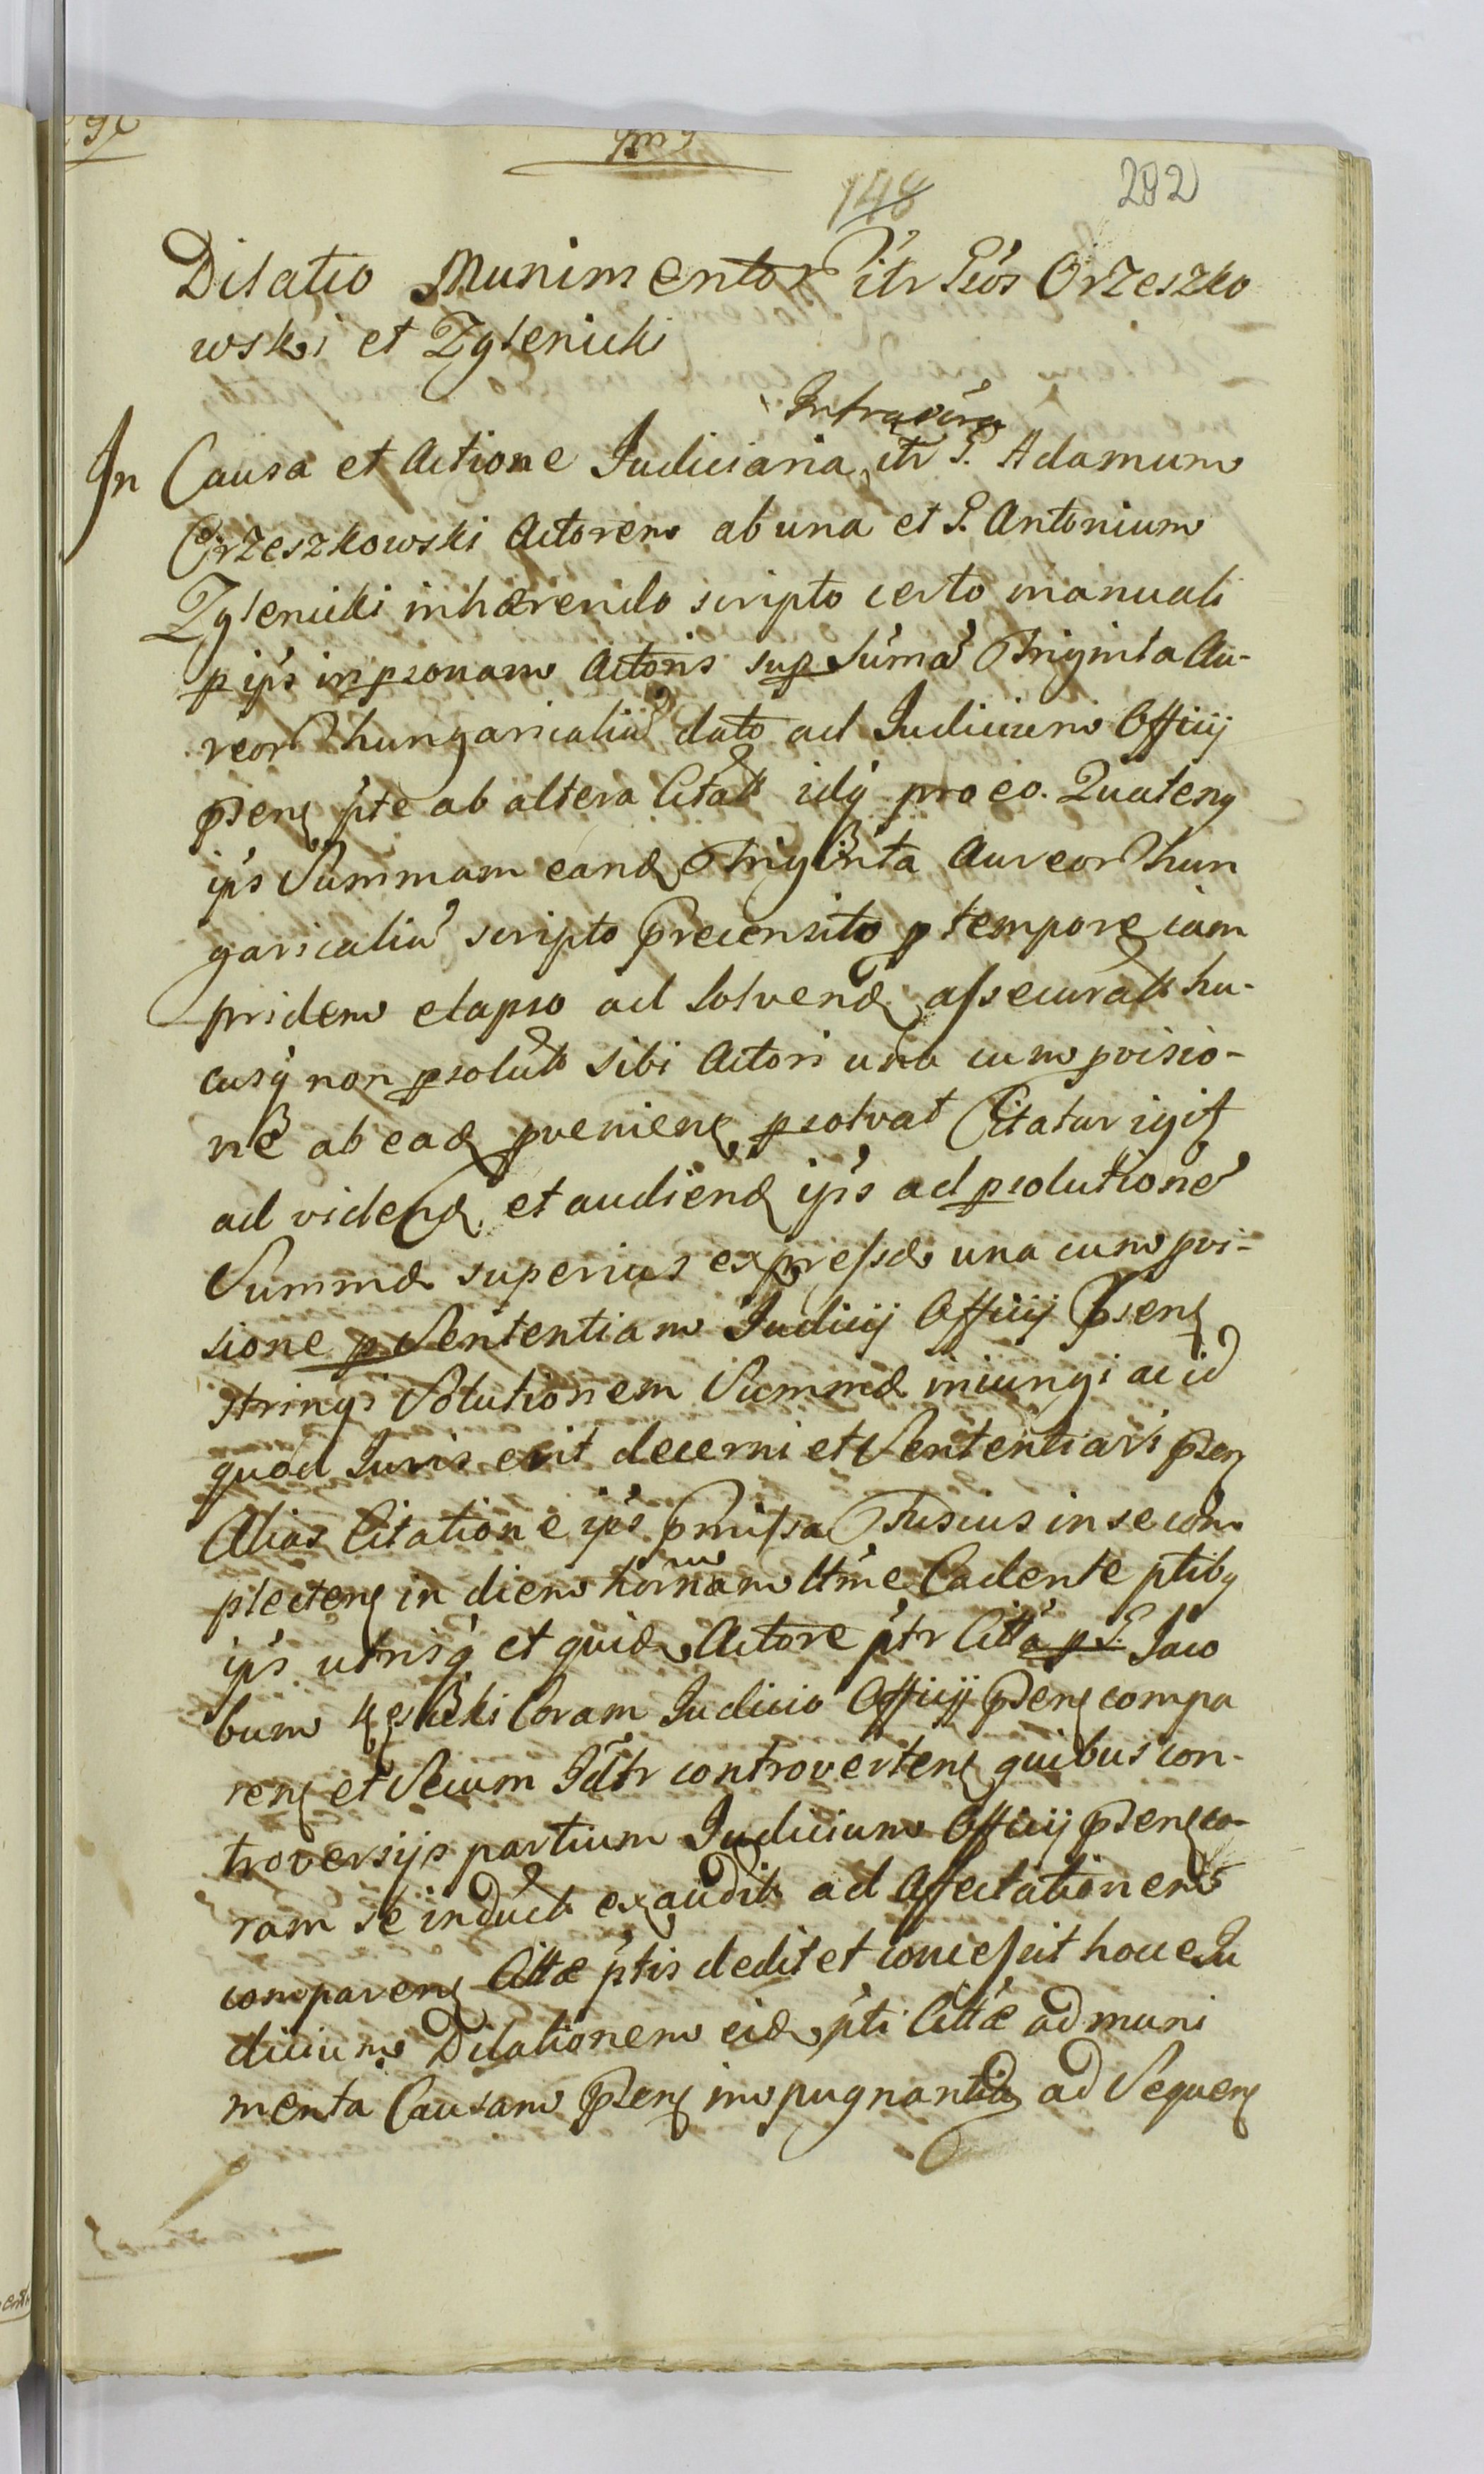 148
282
Dilatio Munimentor itr Pios Orzeszko
wski et Zglenicki
Intrascr
In Causa et Actione Judiciaria itr P. Adamum
Orzeszkowski Actorem ab una et P. Antonium
Zglenicki inhærendo scripto certo manuali
p ips in psonam Actoris sup Suma Triginta Au-
reor hungaricaliu dato ad Judicium Officij
psenς pte ab altera Citat idq pro eo. Quatenꝯ
ips Summam eand Triginta Aureor hun
garicaliu scripto precensito p tempore iam
pridem elapso ad Solvend assecurat hu-
cusq non psolut Sibi Actori una cum pvisio-
ne ab ead pvenienς psolvat Citatur igit
ad videnď et audienď ips ad psolutione
Summæ superius expressæ una cum pvi-
sione p Sententiam Judicij Officij psenς
stringi Solutionem Summæ iniungi ac id
quod Juris erit decerni et Sententiari psenς
Alias Citatione ips pmissa Fusius in se com
plectenς in diem hornam ltme Cadente ptibꝯ
ips utrisq et quid Actore ptr Citta p P. Jaco
bum Kęsicki Coram Judicio Officij psenς compa
renς et Secum Jdtr controvertenς quibus con-
troversijs partium Judicium Officij psenς co-
ram se induct exaudit ad Affectationem
comparenς Cittæ ptis dedit et concessit hocce Ju
dicium Dilationem eid pti Cittæ ad muni
menta Causam psenς impugnantia ad Sequenς